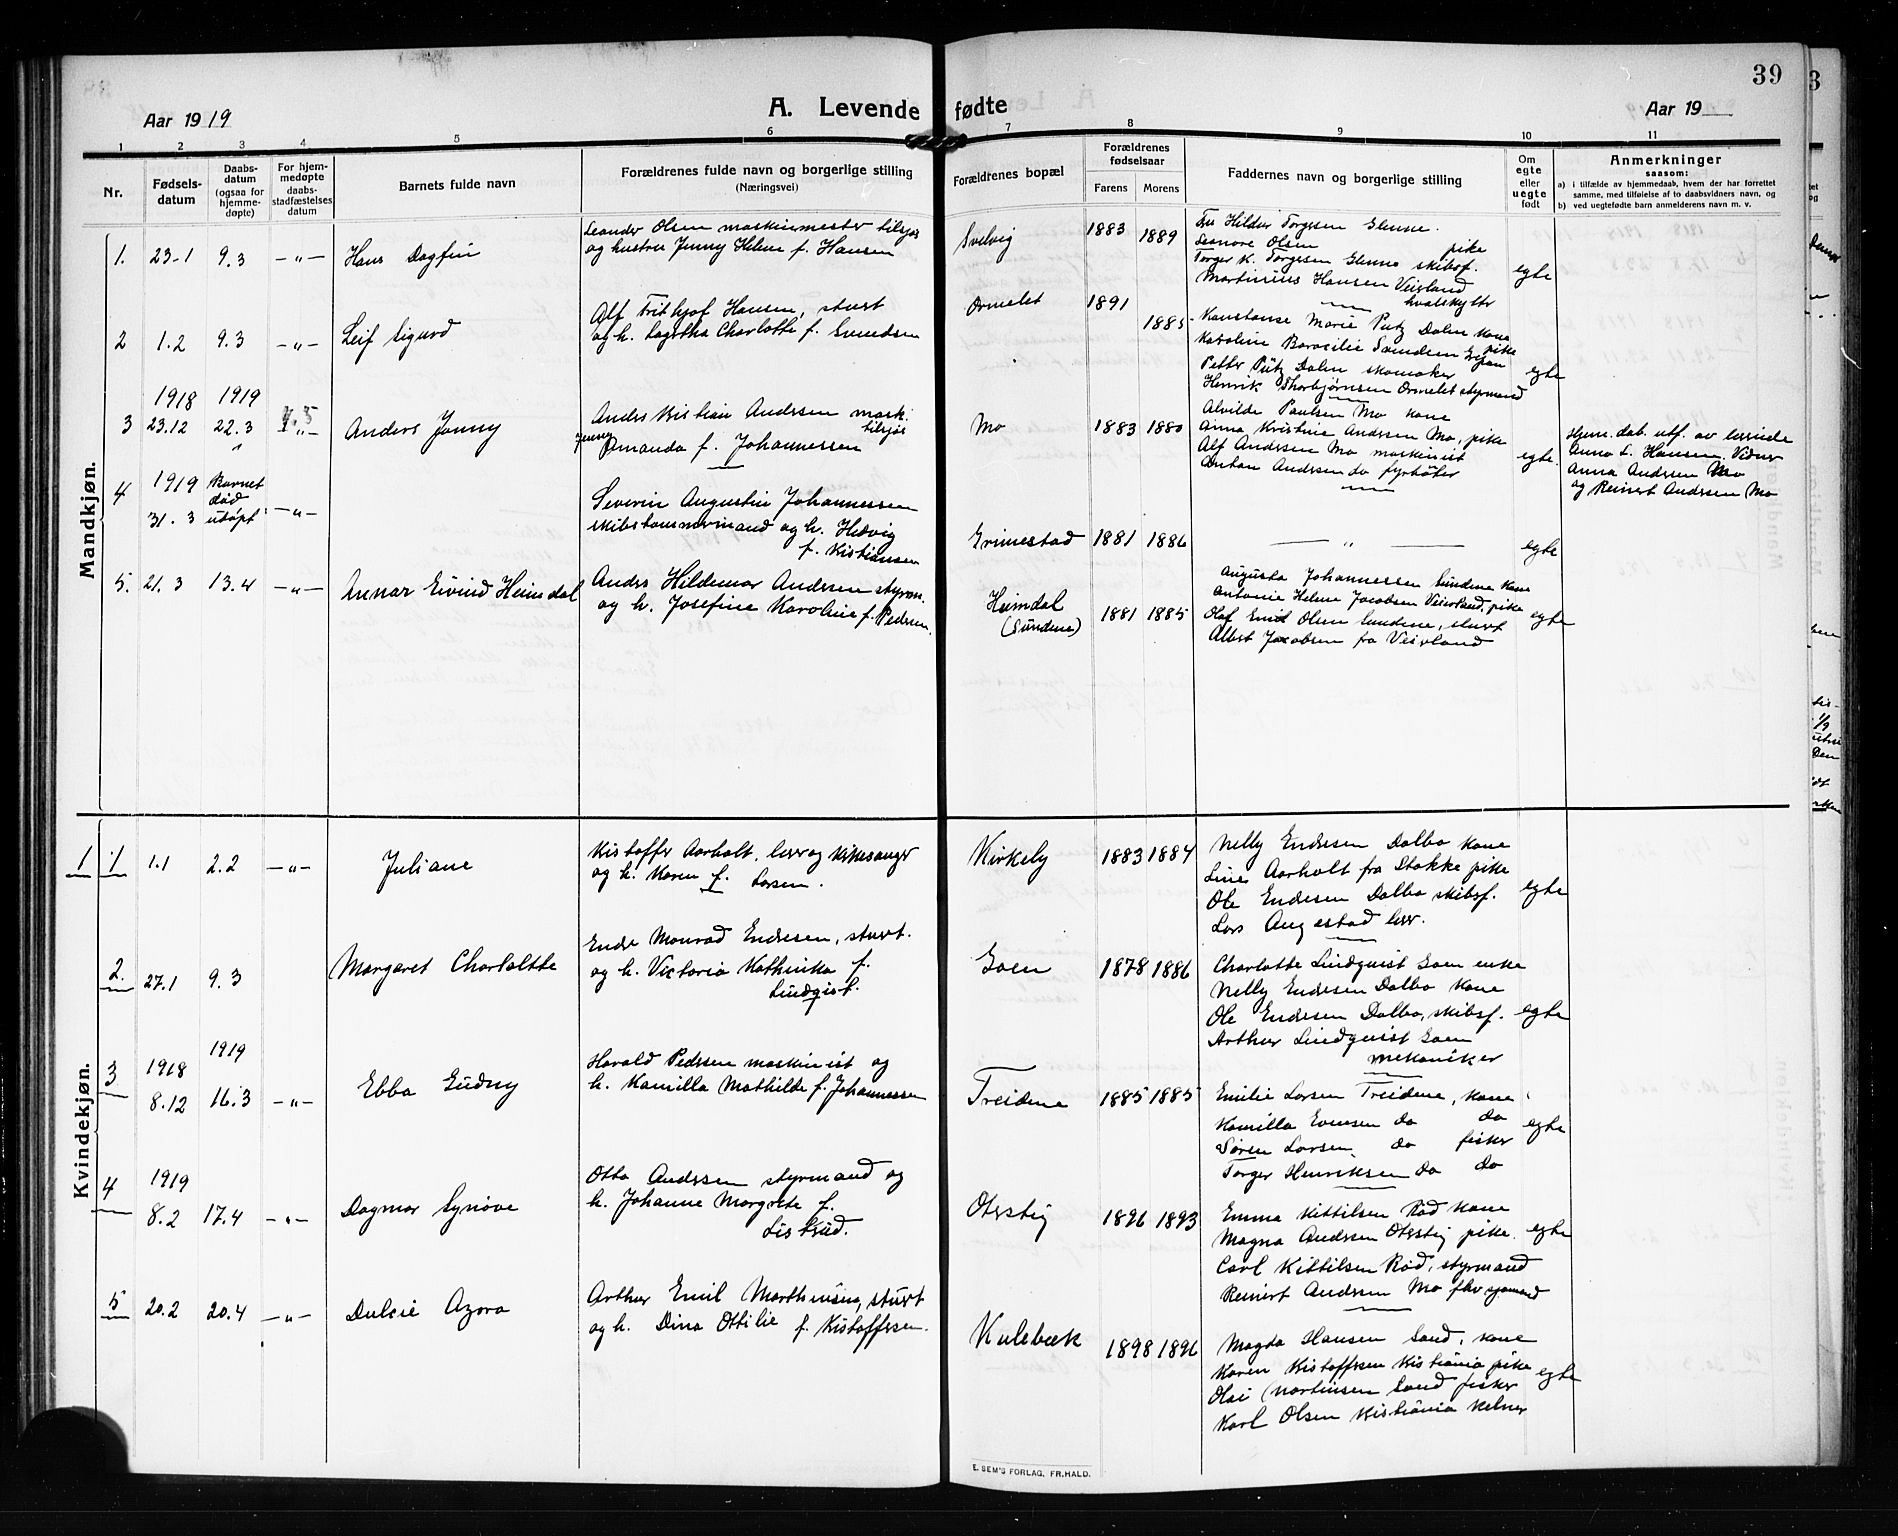 39
Aar 1919
A. Levende fødte
Aar 19
1 2 3 4 5 6 7 8 9 10 11
Nr.
Fødsels-
datum
Daabs-
datum
(ogsaa for
hjemme-
døpte)
For hjem-
medøpte
daabs-
stadfæstelses
datum
Barnets fulde navn
Forældrenes fulde navn og borgerlige stilling
(Næringsvei)
Forældrenes bopæl
Forældrenes
fødselsaar
Farens Morens
Faddernes navn og borgerlige stilling
Om
egte
eller
uegte
født
Anmerkninger
saasom:
a) i tilfælde av hjemmedaab, hvem der har forrettet
samme, med tilføielse af to daabsvidners navn, og
b) ved uegtefødte barn anmelderens navn m. v.
Mandkjøn.
1. 23-1 9.3 -„- Hans Dagfin
Leander Olsen maskinmester tilsjøs
og hustru Jenny Helene f. Hansen
Svelvig 1883 1889
Fru Hildur Torgesen Glenne.
Leonore Olsen pike
Torger K. Torgesen Glenne skibsf.
Martinius Hansen Veierland
hvalskytter
egte
2 1.2 9.3 -„- Leif Sigurd
Alf Frithjof Hansen, stuert
og h. Lagertha Charlotte f. Svendsen
Ormelet 1891 1885
Konstanse Marie Putz Dalen kone
Karoline Svendsen pike
Petter Putz Dalen skomaker
Henrik Thorbjørnsen Ormelet styrmand
egte
3 1918 23.12 1919 22.3 -„- Anders Jonny
Anders Kristian Andersen mask.
tilsjøs
Jensine Amanda f. Johannessen
Mo 1883 1880
Alvilde Paulsen Mo kone
Anna Kristine Andersen Mo, pike
Alf Andersen Mo maskinist
Anton Andersen do fyrbøter
egte.
Hjem. dab. utf. av lærerinde
Anna L. Hansen. Vidner
Anna Andersen Mo
og Reinert Andersen Mo
4 1919 31.3 Barnet
død
udøpt -„-
Severin Augustin Johannessen
skibstømmermand og h. Hedvig
f. Kristiansen
Grimestad 1881 1886 — „ — egte
5. 21.3 13.4 -„- Annar Eivind Heimdal
Anders Hildemar Andersen styrm.
og h. Josefine Karoline f. Pedersen.
Heimdal
(Sundene) 1881 1885
Augusta Johannessen Sundene kone
Antonie Helene Jacobsen Veierland, pike
Olaf Emil Olsen Sundene, stuert
Albert Jacobsen fra Veierland
egte
Kvindekjøn.
1 1 1.1 2.2 -„- Juliane
Kristoffer Aarholt, lærer og kirkesanger
og h. Karen f. Larsen.
Kirkely 1883 1884
Nelly Endresen Dalbo kone
Line Aarholt fra Stokke pike
Ole Endresen Dalbo skibsf.
Lars Augestad lærer.
egte
2. 27.1 9.3 Margaret Charlotte
Endre Monrad Endresen, stuert.
og h. Victoria Kathinka f.
Lindqist.
Goen 1878 1886
Charlotte Lindquist Goen enke
Nelly Endresen Dalbo kone
Ole Endresen Dalbo, skibsf.
Arthur Lindquist Goen
mekaniker
egte
3 1918 8.12 1919 16.3 -„- Ebba Eudny
Harald Pedersen maskinist og
h. Kamilla Mathilde f. Johannessen
Treidene 1885 1885
Emilie Larsen Treidene, kone
Kamilla Evensen do do
Søren Larsen do fisker
Torger Henriksen do do
egte
4 1919 8.2 17.4 -„- Dagmar Synøve
Otto Andersen styrmand og
h. Johanne Margrete f.
Liskrud.
Oterstig 1896 1893
Emma Kittilsen Rød kone
Magna Andersen Oterstig pike.
Carl Kittilsen Rød, styrmand
Reinert Andersen Mo
egte
5 20.2 20.4 -„- Dulcie Azora
Arthur Emil Marthinsen, stuert
og h. Dina Ottilie f. Kristoffersen.
Kulebæk 1898 1896
Magda Hansen Sand, kone
Karen Kristoffersen Kristiania pike
Olai Martinsen Sand fisker
Karl Olsen Kristiania kelner
egte
E. SEM'S FORLAG, FR.HALD.